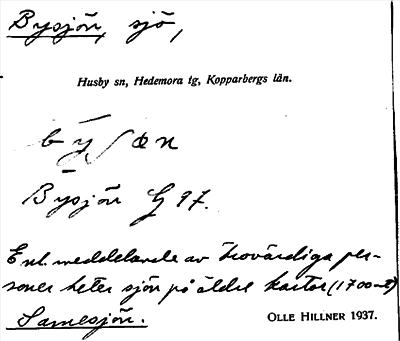 Bysjön, sjö,
Husby sn, Hedemora tg, Kopparbergs län.
Bysjön G 97.
Enl. meddelande av trovärdiga per-
soner heter sjön på äldre kartor (1700-t)
Samesjön.
OLLE HILLNER 1937.